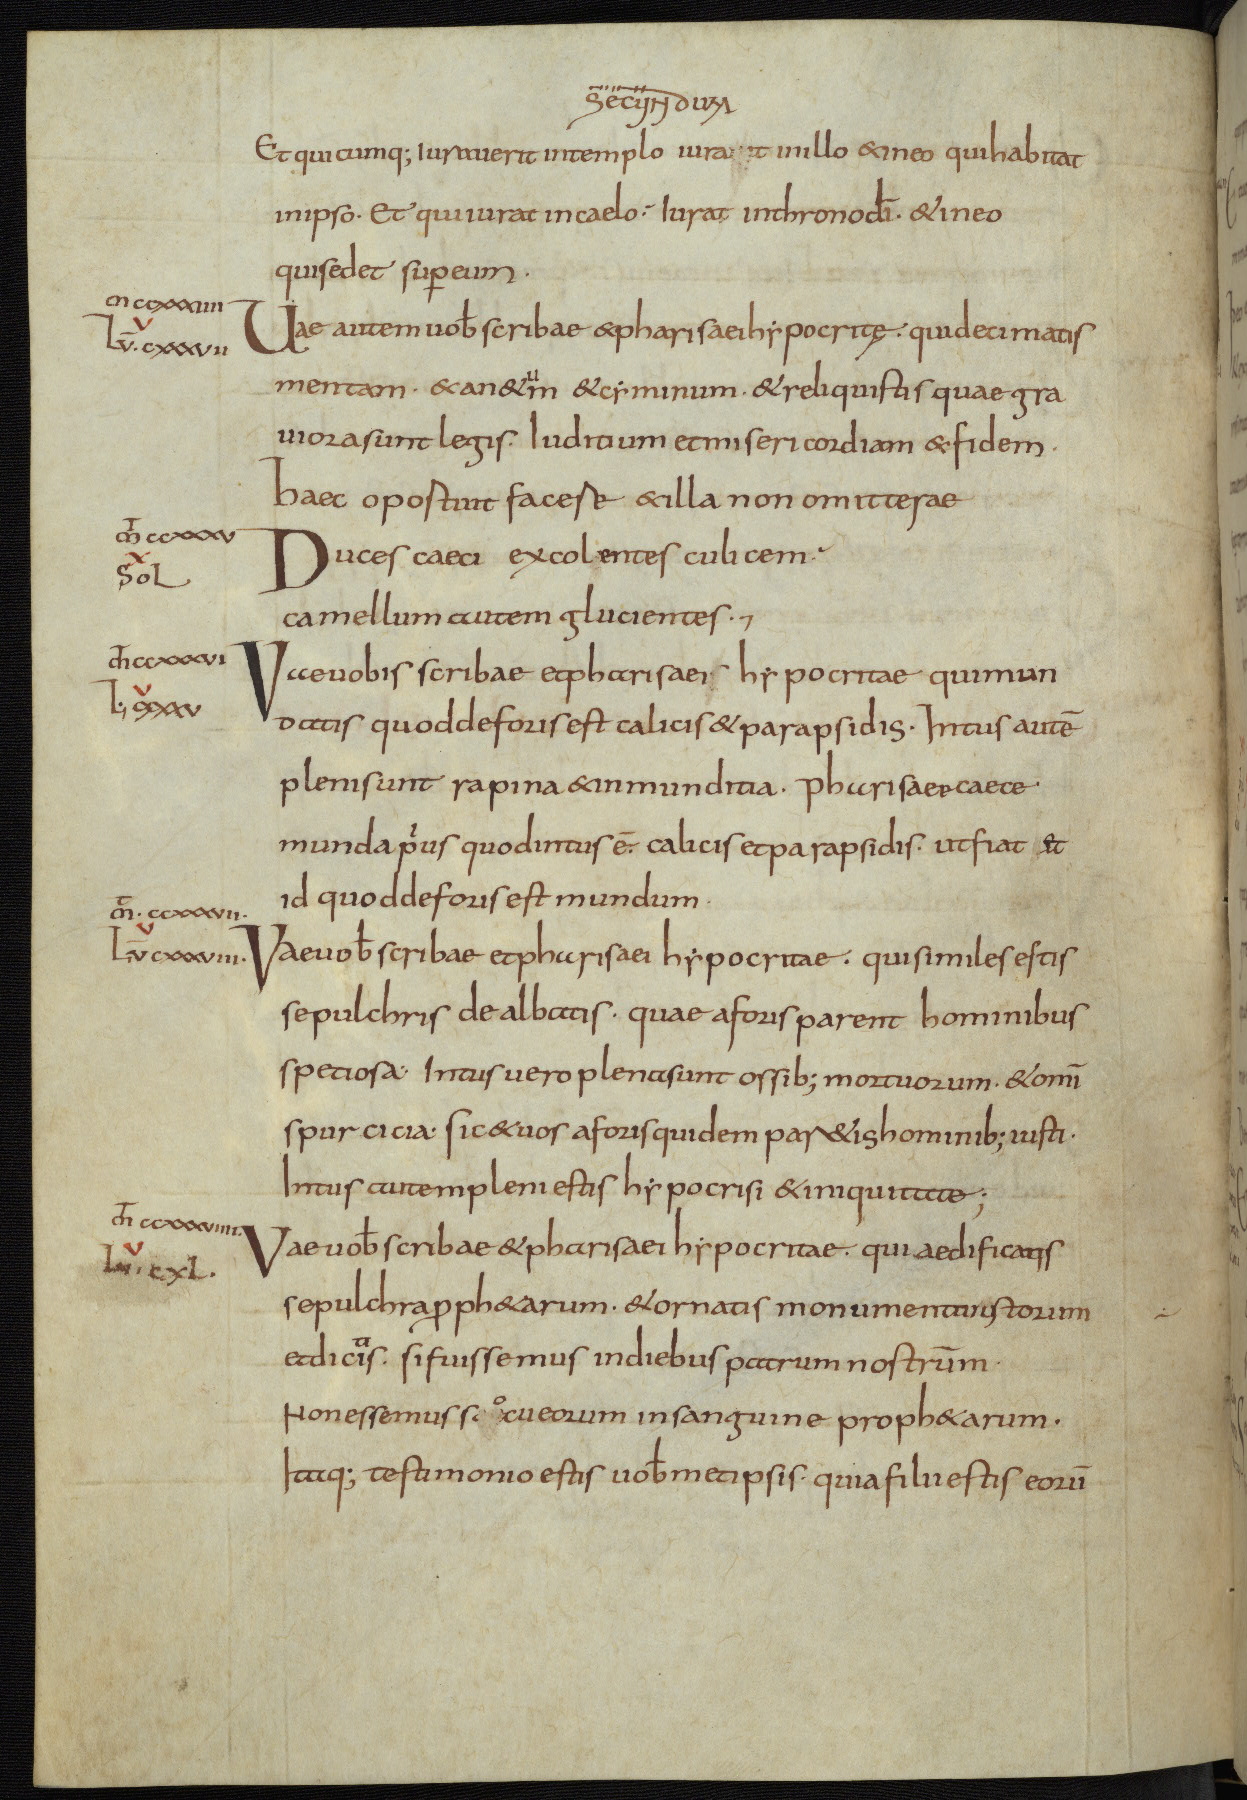 SECUNDUM
Et quicumq; iuraverit intemplo iurat inillo &ineo quihabitat
inipso. Et quiiurat incaelo. Iurat inthronodī. &ineo
quisedet sup̄eum.
m̄ ccxxxiiii
Vae autem vob̄ scribae &pharisaei hẏpocritę. quidecimatis
v
Lv̄. cxxxvii
mentam. &an&um &cẏminum. &reliquistis quae gra
viora sunt legis. Iuditium etmisericordiam &fidem.
haec oportuit facere &illa non omitterae
m̄ ccxxxv
Duces caeci excolentes culicem.
x
Sol
camellum autem glucientes.
m̄ ccxxxvi
Vaevobis scribae etpharisaei hẏpocritae quimun
v
datis quoddeforisest calicis &parapsidis. Intus autē
plenisunt rapina &inmunditia. Pharisaee caece
munda prius quodintus ē. calicis etparapsidis. utfiat et
id quoddeforisest mundum.
m̄. ccxxxvii.
v
Lv̄ cxxxviii.
Vaevob̄ scribae etpharisaei hẏpocritae. quisimilesestis
sepulchris dealbatis. quae aforis parent hominibus
spetiosa. Intus vero plenasunt ossib; mortuorum. &omī
spurcicia. sic &vos aforisquidem par&is hominib; iusti.
Intus autem pleni estis hẏpocrisi &iniquitate;
m̄ ccxxxviiii.
Vaevob̄ scribae &pharisaei hẏpocritae. qui aedificatis
v
cxl.
sepulchra pph&arum. &ornatis monumenta iustorum
etdicitis. si fuissemus indiebus patrum nostrūm.
Non essemus socii eorum insanguine proph&arum.
Itaq; testimonio estis vob̄ metipsis. quia filii estis eorū